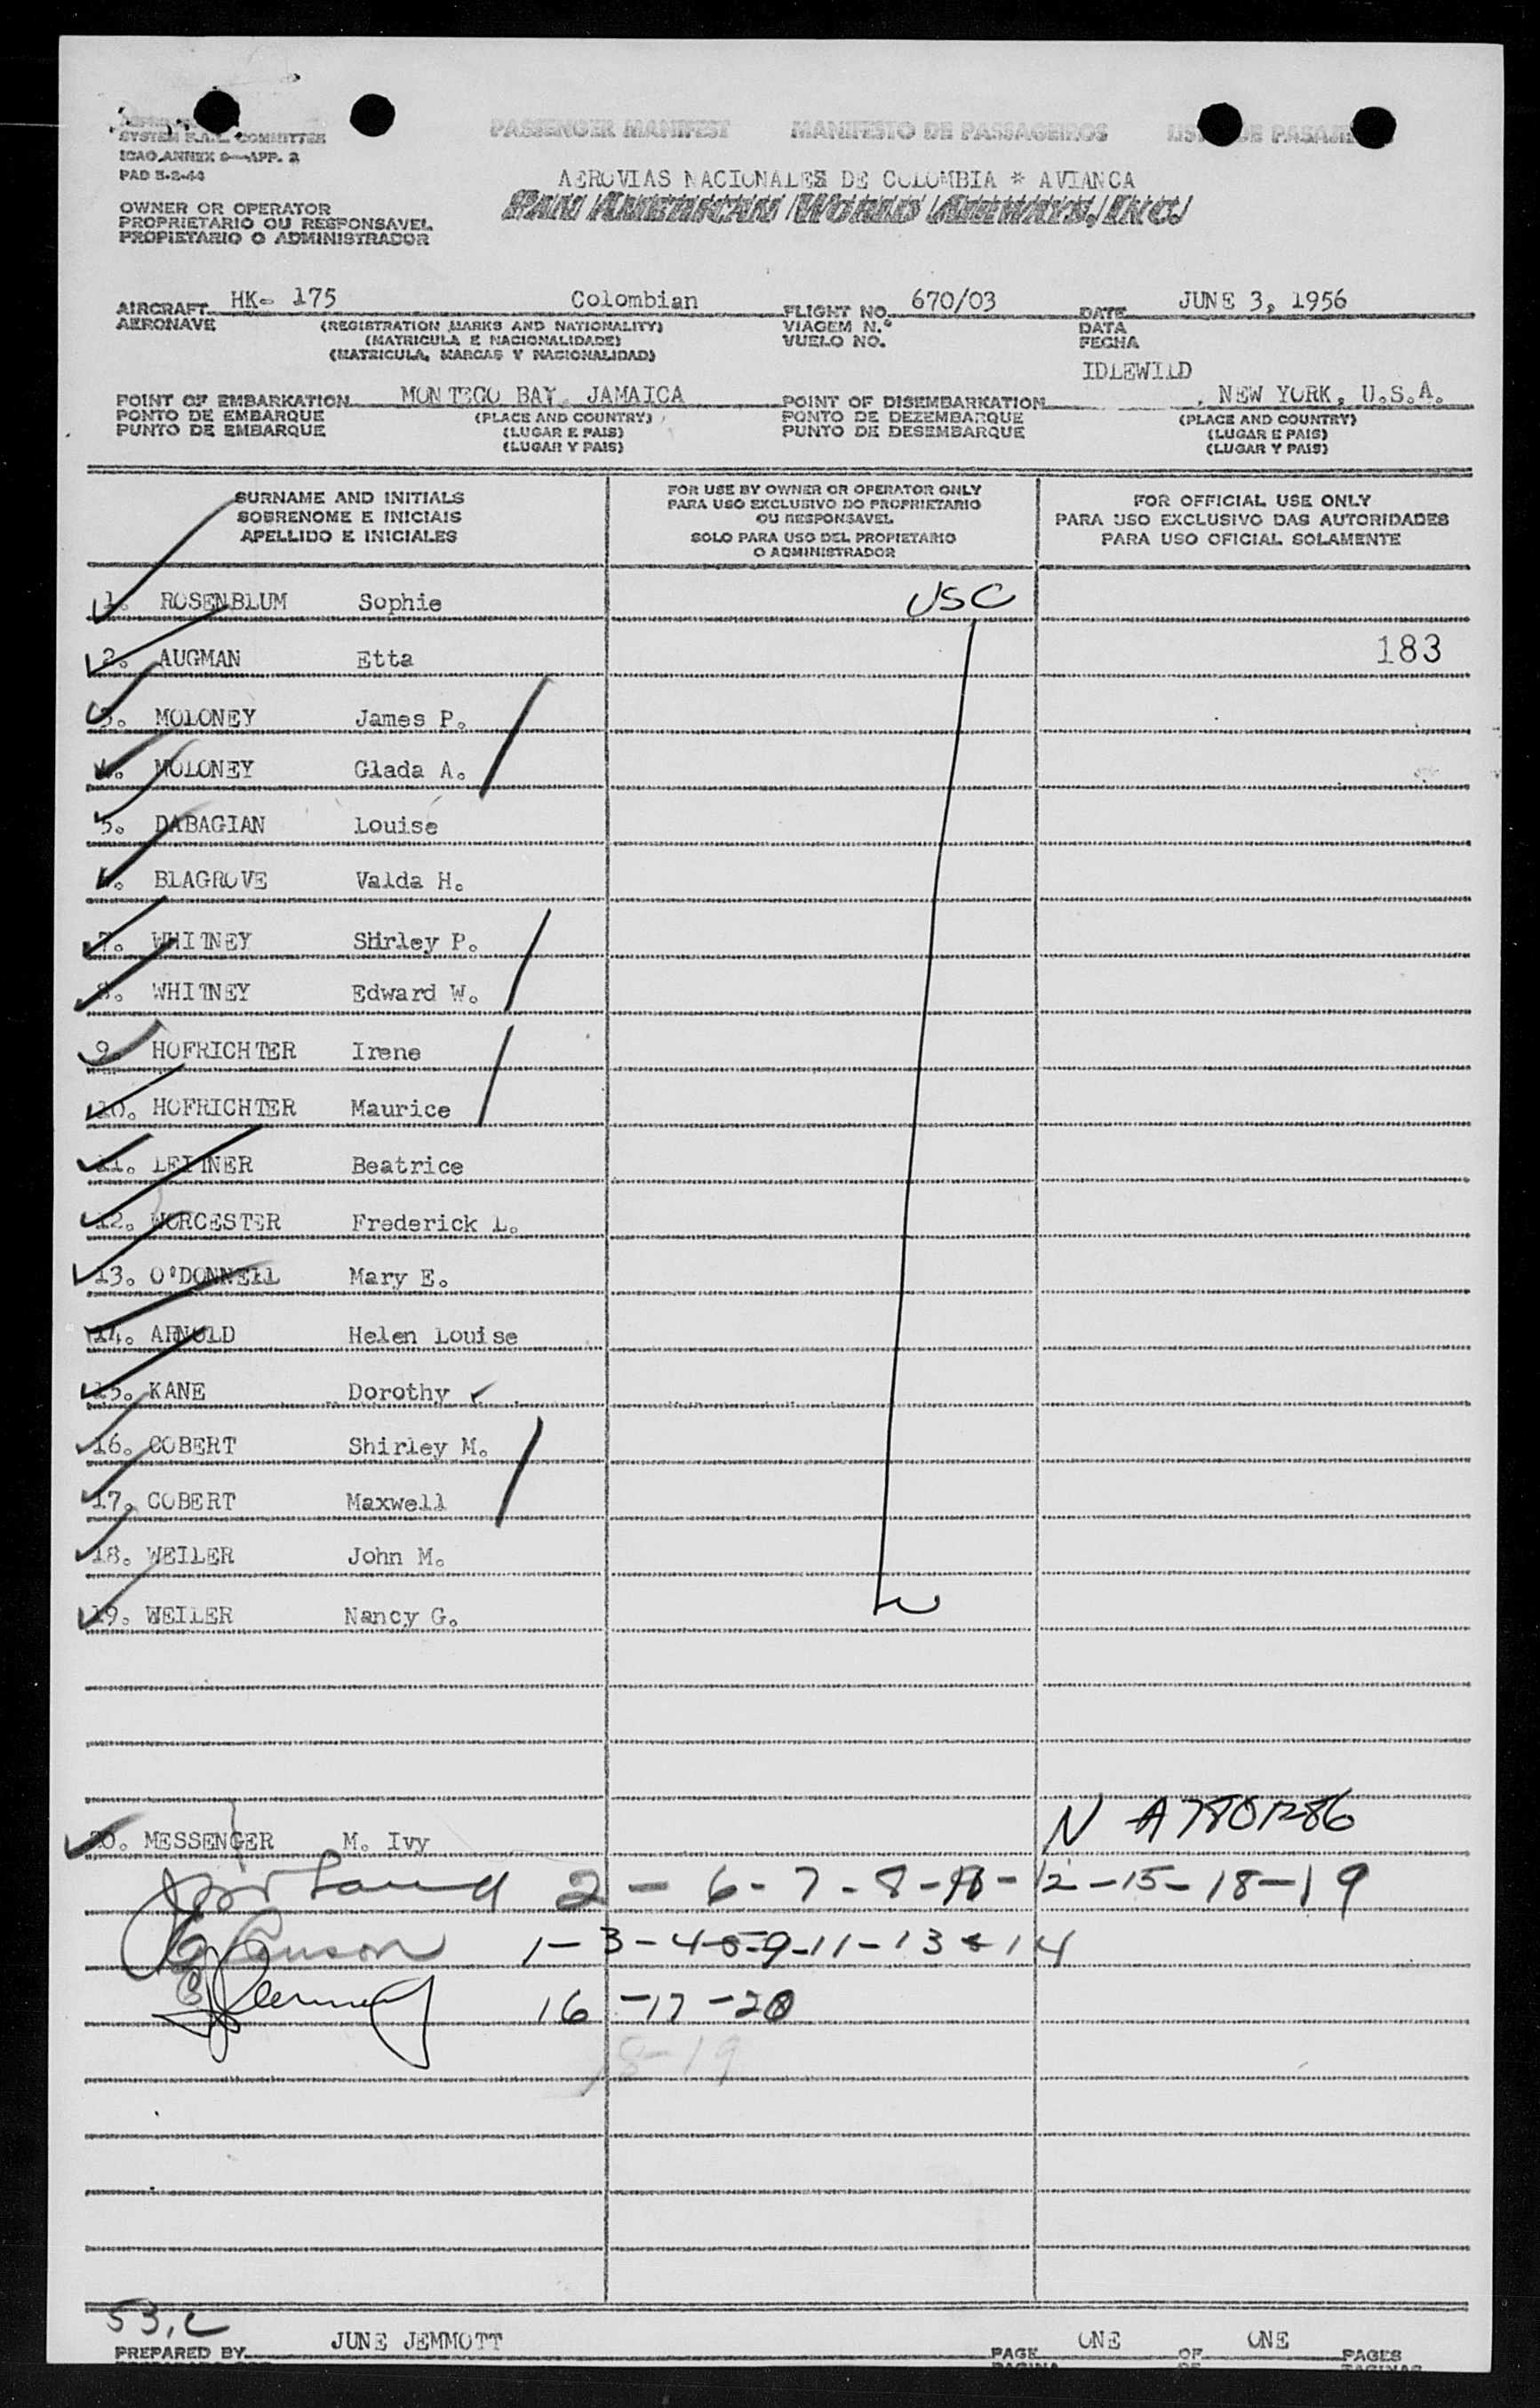 SYSTEM F.A.L. COMMITTEE
ICAO ANNEX 9—APP. 2
PAD 5-2-44
PASSENGER MANIFEST MANIFESTO DE PASSAGEIROS LISTA DE PASAJEROS
AEROVIAS NACIONALES DE COLOMBIA * AVIANCA
PAN AMERICAN WORLD AIRWAYS, INC.
OWNER OR OPERATOR
PROPRIETARIO OU RESPONSAVEL
PROPIETARIO O ADMINISTRADOR
AIRCRAFT HK- 175 Colombian FLIGHT NO. 670/03 DATE JUNE 3, 1956
AERONAVE (REGISTRATION MARKS AND NATIONALITY) VIAGEM N.º DATA
(MATRICULA E NACIONALIDADE) VUELO NO. FECHA
(MATRICULA, MARCAS Y NACIONALIDAD)
IDLEWILD
POINT OF EMBARKATION MONTEGO BAY, JAMAICA POINT OF DISEMBARKATION , NEW YORK, U.S.A.
PONTO DE EMBARQUE (PLACE AND COUNTRY) PONTO DE DEZEMBARQUE (PLACE AND COUNTRY)
PUNTO DE EMBARQUE (LUGAR E PAIS) PUNTO DE DESEMBARQUE (LUGAR E PAIS)
(LUGAR Y PAIS) (LUGAR Y PAIS)
SURNAME AND INITIALS
SOBRENOME E INICIAIS
APELLIDO E INICIALES
FOR USE BY OWNER OR OPERATOR ONLY
PARA USO EXCLUSIVO DO PROPRIETARIO
OU RESPONSAVEL
SOLO PARA USO DEL PROPIETARIO
O ADMINISTRADOR
FOR OFFICIAL USE ONLY
PARA USO EXCLUSIVO DAS AUTORIDADES
PARA USO OFICIAL SOLAMENTE
1. ROSENBLUM Sophie USC
2. AUGMAN Etta 183
3. MOLONEY James P.
4. MOLONEY Glada A.
5. DABAGIAN Louise
6. BLAGROVE Valda H.
7. WHITNEY Shirley P.
8. WHITNEY Edward W.
9. HOFRICHTER Irene
10. HOFRICHTER Maurice
11. LEITNER Beatrice
12. WORCESTER Frederick L.
13. O'DONNELL Mary E.
14. ARNOLD Helen Louise
15. KANE Dorothy
16. COBERT Shirley M.
17. COBERT Maxwell
18. WEILER John M.
19. WEILER Nancy G.
20. MESSENGER M. Ivy N A7801286
2 - 6 - 7 - 8 - 10 - 12 - 15 - 18 - 19
1 - 3 - 4 - 5 - 9 - 11 - 13 & 14
16 - 17 - 20
18-19
53, C
PREPARED BY JUNE JEMMOTT PAGE ONE OF ONE PAGES